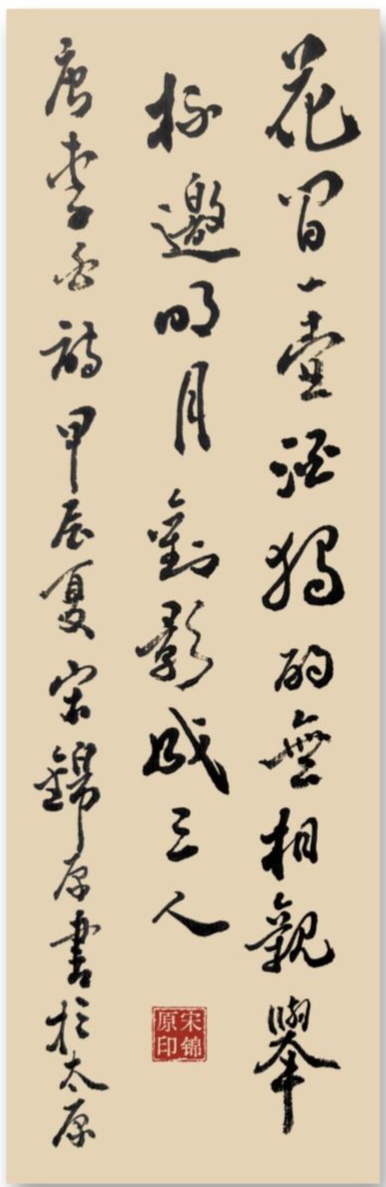 花間一壺酒獨酌無相親舉
杯邀明月對影成三人
唐李白詩甲辰夏宋錦原書於太原
宋锦
原印